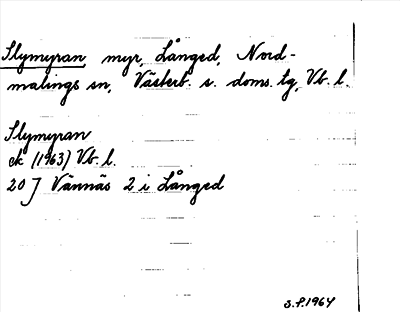 Slymyran, myr, Långed, Nord-
malings sn, Västerb. s. doms. tg, Vb. l.
Slymyran
ek (1963) Vb. l.
20 J Vännäs 2 i Långed
S.P. 1964